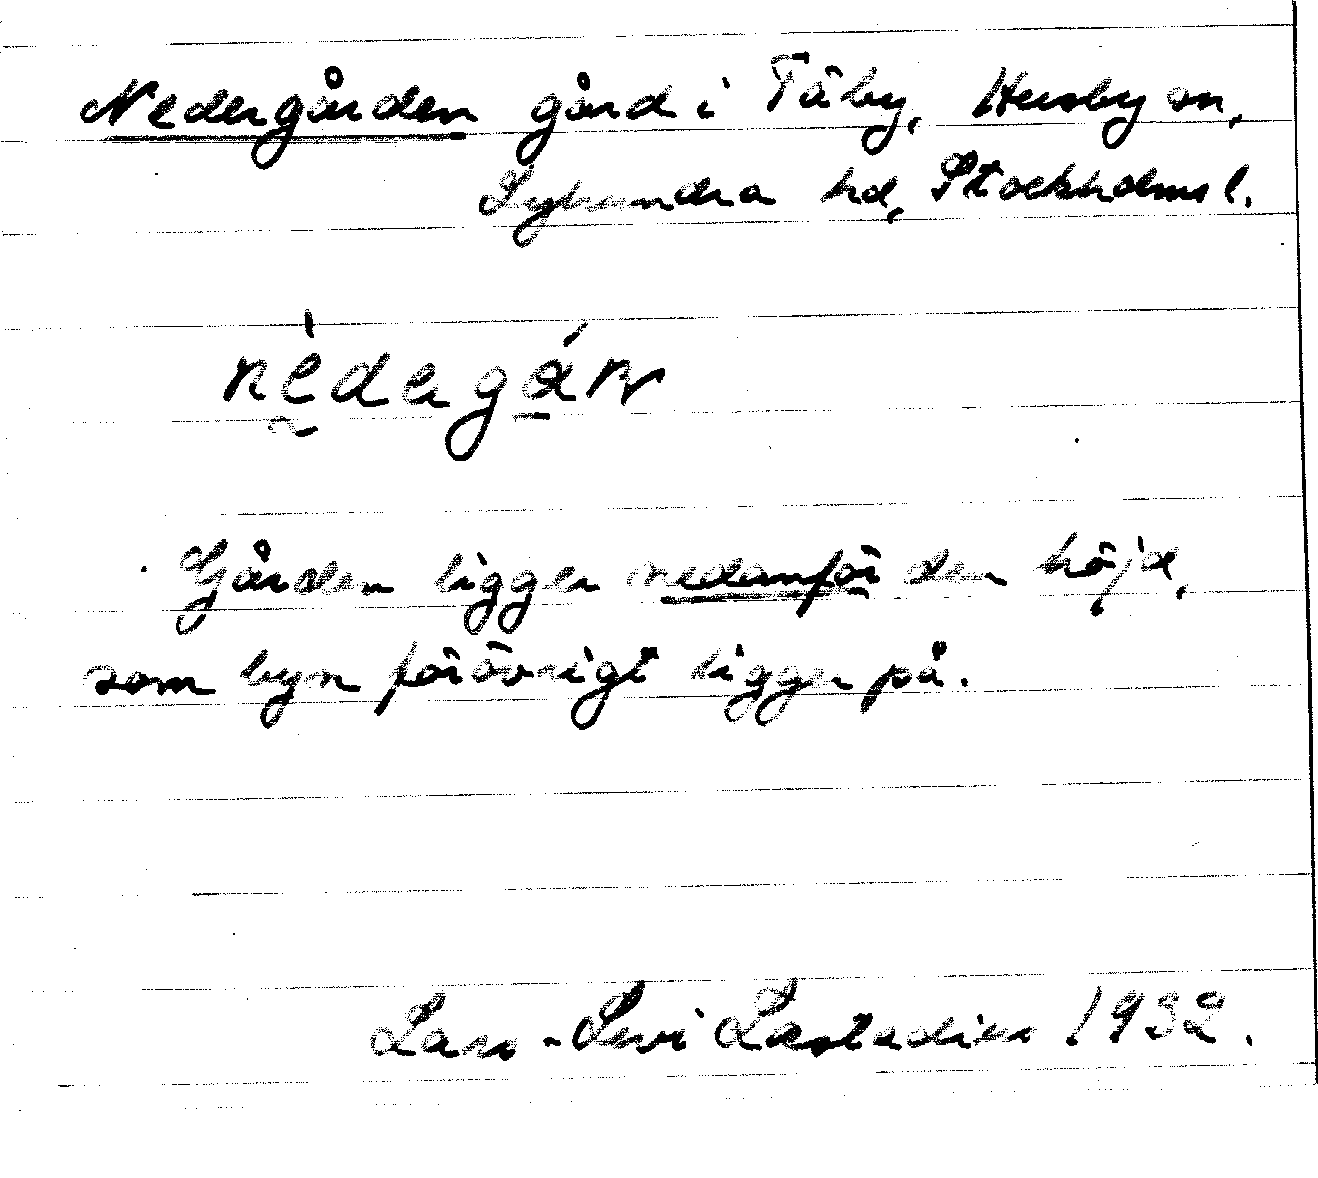 Nedergården gård i Täby, Husby sn,
Lyhundra hd, Stockholms l.
nèdagáṇ
Gården ligger nedanför den höjd,
som byn förövrigt ligger på.
Lars-Levi Læstadius 1932.